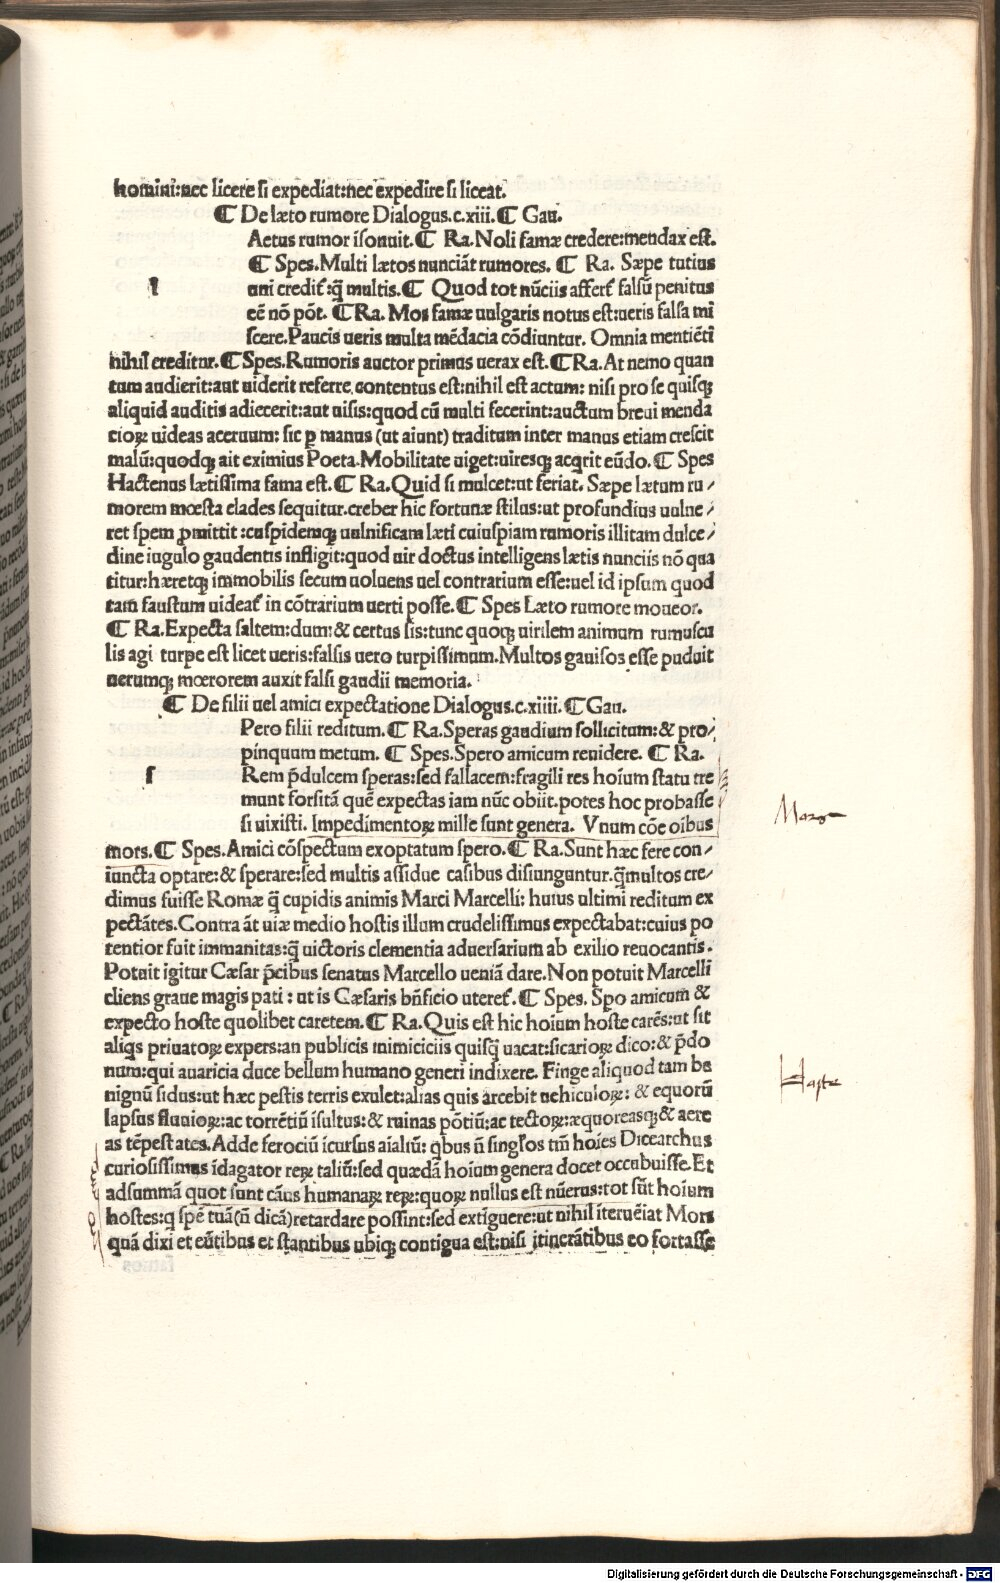 homini:nec licere si expediat:nec expedire si liceat.
¶ De læto rumore Dialogus.c.xiii.¶ Gau.
Aetus rumor ĩsonuit.¶ Ra.Noli famæ credere:mendax est.
¶ Spes.Multi lætos nunciãt rumores. ¶ Ra. Sæpe tutius
l uni credit᷑:q̃ multis.¶ Quod tot nũciis affert᷑ falsũ penitus
eẽ nõ põt. ¶Ra. Mos famæ uulgaris notus est:ueris falsa mi
scere.Paucis ueris multa mẽdacia cõdiuntur. Omnia mentiẽti
nihil creditur.¶Spes.Rumoris auctor primus uerax est.¶Ra.At nemo quan
tum audierit:aut uiderit referre contentus est:nihil est actum: nisi pro se quisqꝫ
aliquid auditis adiecerit:aut uisis:quod cũ multi fecerint:auctum breui menda
cioꝝ uideas aceruum: sic ꝑ manus (ut aiunt) traditum inter manus etiam crescit
malũ:quodqꝫ ait eximius Poeta.Mobilitate uiget:uiresqꝫ acqrit eũdo.¶ Spes
Hactenus lætissima fama est.¶ Ra.Quid si mulcet:ut feriat. Sæpe lætum ru/
morem mœsta clades sequitur.creber hic fortunæ stilus:ut profundius uulne/
ret spem ꝓmittit:cuspidemqꝫ uulnificam læti cuiuspiam rumoris illitam dulce/
dine iugulo gaudentis infligit:quod uir doctus intelligens lætis nunciis nõ qua
titur:hæretqꝫ immobilis secum uoluens uel contrarium esse:uel id ipsum quod
tam faustum uideat᷑ in cõtrarium uerti posse.¶ Spes Læto rumore moueor.
¶ Ra.Expecta saltem:dum:& certus sis:tunc quoqꝫ uirilem animum rumuscu
lis agi turpe est licet ueris:falsis uero turpissimum.Multos gauisos esse puduit
uerumqꝫ mœrorem auxit falsi gaudii memoria.
¶ De filii uel amici expectatione Dialogus.c.xiiii.¶Gau.
Pero filii reditum.¶ Ra.Speras gaudium sollicitum:& pro/
pinquum metum. ¶ Spes.Spero amicum reuidere. ¶ Ra.
s Rem p̃dulcem speras:sed fallacem:fragili res hoĩum statu tre
munt forsitã quẽ expectas iam nũc obiit.potes hoc probasse
si uixisti. Impedimentoꝝ mille sunt genera. Vnum cõe oĩbus
mors.¶ Spes.Amici cõspectum exoptatum spero.¶ Ra.Sunt hæc fere con/
iuncta optare:& sperare:sed multis assidue casibus disiunguntur.q̃multos cre/
dimus fuisse Romæ q̃ cupidis animis Marci Marcelli: huius ultimi reditum ex
pectãtes.Contra ãt uiæ medio hostis illum crudelissimus expectabat:cuius po
tentior fuit immanitas:q̃ uictoris clementia aduersarium ab exilio reuocantis.
Potuit igitur Cæsar p̃cibus senatus Marcello ueniã dare.Non potuit Marcelli
cliens graue magis pati : ut is Cæsaris bñficio uteret᷑.¶ Spes. Spo amicum &
expecto hoste quolibet caretem.¶ Ra.Quis est hic hoĩum hoste carẽs:ut sit
aliqs priuatoꝝ expers:an publicis inimiciciis quisq̃ uacat:sicarioꝝ dico:& p̃do
num:qui auaricia duce bellum humano generi indixere. Finge aliquod tam be
nignũ sidus:ut hæc pestis terris exulet:alias quis arcebit uehiculoꝝ: & equorũ
lapsus fluuioꝝ:ac torrẽtiũ ĩsultus:& ruinas põtiũ:ac tectoꝝ:æquoreasqꝫ& aere
as tẽpestates.Adde ferociũ ĩcursus aĩaliũ: qbus ñ singl'os tm̃ hoĩes Dicearchus
curiosissimus ĩdagator reꝝ taliũ:sed quædã hoĩum genera docet occubuisse.Et
adsummã quot sunt cãus humanaꝝ reꝝ:quoꝝ nullus est nũerus:tot sũt hoĩum
hostes:q spẽ tuã(ñ dicã)retardare possint:sed extĩguere:ut nihil ĩteruẽiat Mors
quã dixi et eũtibus et stantibus ubiqꝫ contigua est:nisi itinerãtibus eo fortasse